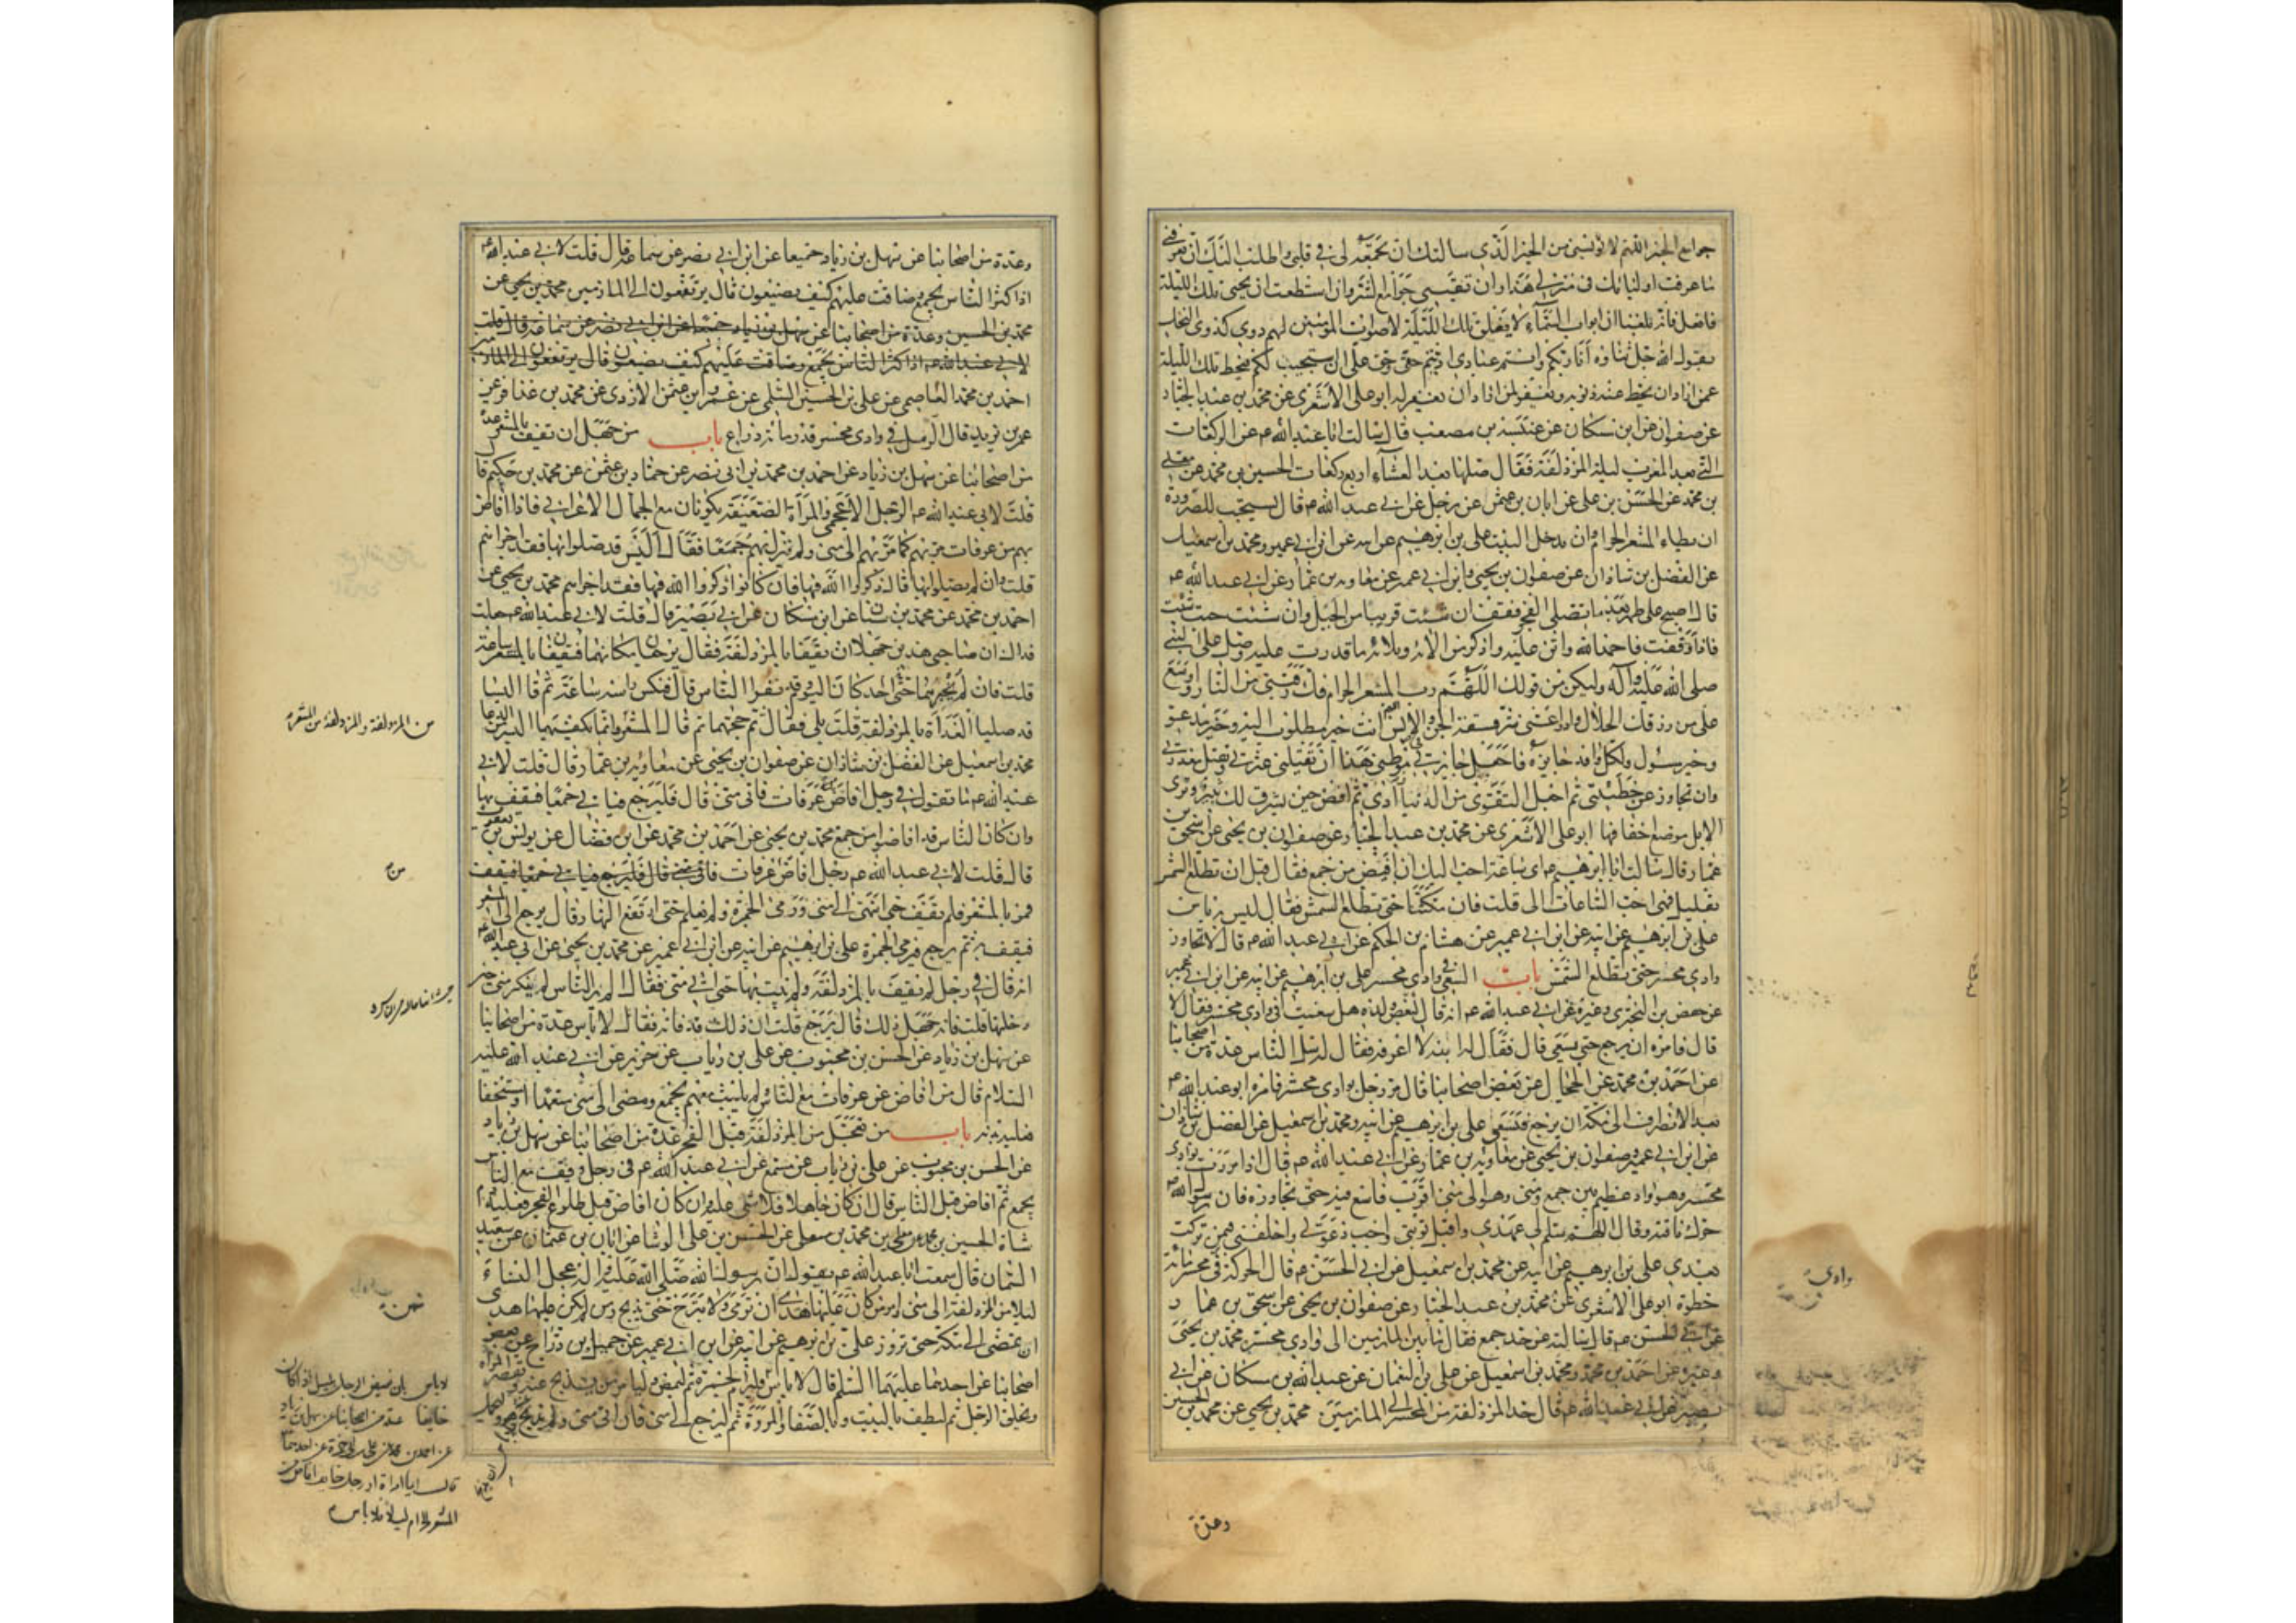 جوامع الخير اللهم لا تؤيسني من الخير الذي سالتك ان تجمعه لي في قلبي واطلب اليك ان تعرفني
ما عرفت اولياءك في منزلي هذا وان تقيني جوامع الشر وان استطعت ان يحيى تلك الليلة
فافعل فانه بلغنا ان ابواب السماء لا يغلق تلك الليلة لاصوات المؤمنين لهم دوي كدوي النحل
يقول الله جل ثناؤه انا ربكم وانتم عبادي اديتم حقي وحق علي ان استجيب لكم فيحط تلك الليلة
عمن اراد ان يحط عنه ذنوبه ويغفر لمن اراد ان يغفر له ابو علي الاشعري عن محمد بن عبد الجبار
عن صفوان عن ابن مسكان عن عنبسة بن مصعب قال سالت ابا عبد الله ع عن الركعات
التي بعد المغرب ليلة المزدلفة فقال صلها بعد العشاء اربع ركعات الحسين بن محمد عن معلى
بن محمد عن الحسن بن علي عن ابان بن عثمن عن رجل عن ابي عبد الله ع قال يستحب للصرورة
ان يطاء المشعر الحرام وان يدخل البيت علي بن ابرهيم عن ابيه عن ابن ابي عمير ومحمد بن اسمعيل
عن الفضل بن شاذان عن صفوان بن يحيى وابن ابي عمير عن معاوية بن عمار عن ابي عبد الله ع
قال اصبح على طهر بعد ما تصلي الفجر فقف ان شئت قريبا من الجبل وان شئت حيث شئت
فاذا وقفت فاحمد الله واثن عليه واذكر من الائه وبلائه ما قدرت عليه وصل على النبي
صلى الله عليه وآله وليكن من قولك اللهم رب المشعر الحرام فك رقبتي من النار واوسع
علي من رزقك الحلال وادرا عني شر فسقة الجن والانس اللهم انت خير مطلوب اليه وخير مدعو
وخير مسؤل ولكل وافد جايزة فاجعل جايزتي في موطني هذا ان تقيلني عثرتي وتقبل معذرتي
وان تجاوز عن خطيئتي ثم اجعل التقوى من الدنيا زادي ثم افض حين يشرق لك ثبير وترى
الابل موضع اخفافها ابو علي الاشعري عن محمد بن عبد الجبار عن صفوان بن يحيى عن اسحق بن
عمار قال سالت ابا ابرهيم ع اي ساعة احب اليك ان افيض من جمع فقال قبل ان تطلع الشمس
بقليل فهي احب الساعات الي قلت فان مكثنا حتى تطلع الشمس فقال ليس به باس
علي بن ابرهيم عن ابيه عن ابن ابي عمير عن هشام بن الحكم عن ابي عبد الله ع قال لا تجاوز
وادي محسر حتى تطلع الشمس باب السعي في وادي محسر علي بن ابرهيم عن ابيه عن ابن ابي عمير
عن حفص بن البختري وغيره عن ابي عبد الله ع انه قال لبعض ولده هل سعيت في وادي محسر فقال لا
قال فامره ان يرجع حتى يسعى قال فقال له ابنه لا اعرفه فقال له سل الناس عدة من اصحابنا
عن احمد بن محمد عن الحجال عن بعض اصحابنا قال مر رجل بوادي محسر فامره ابو عبد الله ع
بعد الانصراف الى مكة ان يرجع فيسعى علي بن ابرهيم عن ابيه ومحمد بن اسمعيل عن الفضل بن شاذان
عن ابن ابي عمير وصفوان بن يحيى عن معاوية بن عمار عن ابي عبد الله ع قال اذا مررت بوادي
محسر وهو واد عظيم بين جمع ومنى وهو الى منى اقرب فاسع فيه حتى تجاوزه فان رسول الله ص
حرك ناقته وقال اللهم سلم لي عهدي واقبل توبتي واجب دعوتي واخلفني فيمن تركت
بعدي علي بن ابرهيم عن ابيه عن محمد بن اسمعيل عن ابي الحسن ع قال الحركة في محسر مائة
خطوة ابو علي الاشعري عن محمد بن عبد الجبار عن صفوان بن يحيى عن اسحق بن عمار
عن ابي الحسن ع قال سالته عن حد جمع فقال ما بين المازمين الى وادي محسر محمد بن يحيى
وغيره عن احمد بن محمد ومحمد بن اسمعيل عن علي بن النعمان عن عبد الله بن مسكان عن ابي
بصير عن ابي عبد الله ع قال حد المزدلفة من المحسر الى المازمين محمد بن يحيى عن محمد بن الحسين
وادي
وعدة
وعدة من اصحابنا عن سهل بن زياد جميعا عن ابن ابي نصر عن سماعة قال قلت لابي عبد الله ع
اذا كثر الناس بجمع وضاقت عليهم كيف يصنعون قال يرتفعون الى المازمين محمد بن يحيى عن
محمد بن الحسين وعدة من اصحابنا عن سهل بن زياد جميعا عن ابن ابي نصر عن سماعة قال قلت
لابي عبد الله ع اذا كثر الناس بجمع وضاقت عليهم كيف يصنعون قال يرتفعون الى المازمين
احمد بن محمد العاصمي عن علي بن الحسين السلمي عن عمرو بن عثمن الازدي عن محمد بن عذافر عن
عمر بن يزيد قال الرمل في وادي محسر قدر مائة ذراع باب من جهل ان يقف بالمشعر عدة
من اصحابنا عن سهل بن زياد عن احمد بن محمد بن ابي نصر عن حماد بن عثمن عن محمد بن حكيم قال
قلت لابي عبد الله ع الرجل الاعجمي والمراة الضعيفة يكونان مع الجمال الاعرابي فاذا افاض
بهم من عرفات مر بهم كما مر بهم الى منى ولم ينزل بهم جمعا فقال اليس قد صلوا بها فقد اجزاهم
قلت وان لم يصلوا بها قال ذكروا الله فيها فان كانوا ذكروا الله فيها فقد اجزاهم محمد بن يحيى عن
احمد بن محمد عن محمد بن سنان عن ابن مسكان عن ابي بصير قال قلت لابي عبد الله ع جعلت
فداك ان صاحبي هذين جهلا ان يقفا بالمزدلفة فقال يرجعان مكانهما فيقفان بالمشعر ساعة
قلت فان لم يخبرهما حتى احد كان اليوم وقد نفر الناس قال فنكس راسه ساعة ثم قال اليسا
قد صليا الغداة بالمزدلفة قلت بلى فقال تم حجهما ثم قال المشعر وانما يكفيهما اليسير من الدعا
محمد بن اسمعيل عن الفضل بن شاذان عن صفوان بن يحيى عن معاوية بن عمار قال قلت لابي
عبد الله ع ما تقول في رجل افاض من عرفات فاتى منى قال فليرجع فياتي جمعا فيقف بها
وان كان الناس قد افاضوا من جمع محمد بن يحيى عن احمد بن محمد عن ابن فضال عن يونس بن يعقوب
قال قلت لابي عبد الله ع رجل افاض من عرفات فاتى منى قال فليرجع فياتي جمعا فيقف
فمر بالمشعر فلم يقف حتى انتهى الى منى ورمى الجمرة ولم يعلم حتى ارتفع النهار قال يرجع الى المشعر
فيقف به ثم يرجع فيرمي الجمرة علي بن ابرهيم عن ابيه عن ابن ابي عمير عن محمد بن يحيى عن ابي عبد الله ع
انه قال في رجل لم يقف بالمزدلفة ولم يبت بها حتى اتى منى فقال الم ير الناس لم ينكر منى حين
دخلها قلت فانه جهل ذلك قال يرجع قلت ان ذلك قد فاته فقال لا باس عدة من اصحابنا
عن سهل بن زياد عن الحسن بن محبوب عن علي بن رياب عن حريز عن ابي عبد الله عليه
السلام قال من افاض عن عرفات مع الناس لم يلبث معهم بجمع ومضى الى منى متعمدا او مستخفا
فعليه بدنة باب من تعجل من المزدلفة قبل الفجر عدة من اصحابنا عن سهل بن زياد
عن الحسن بن محبوب عن علي بن رياب عن مسمع عن ابي عبد الله ع في رجل وقف مع الناس
بجمع ثم افاض قبل الناس قال ان كان جاهلا فلا شي عليه وان كان افاض قبل طلوع الفجر فعليه دم
شاة الحسين بن محمد عن معلى بن محمد عن الحسن بن علي الوشا عن ابان بن عثمان عن سعيد
السمان قال سمعت ابا عبد الله ع يقول ان رسول الله صلى الله عليه واله عجل النساء
ليلا من المزدلفة الى منى وامر من كان عليها هدي ان ترمي ولا تبرح حتى يذبح ومن لم يكن عليها هدي
ان تمضي الى مكة حتى تزور علي بن ابرهيم عن ابيه عن ابن ابي عمير عن جميل بن دراج عن بعض
اصحابنا عن احدهما عليهما السلم قال لا باس
من المزدلفة والمزدلفة من المشعر
من
لا باس بان يفيض الرجل بليل اذا كان
خايفا عدة من اصحابنا عن سهل بن زياد
عن احمد بن محمد عن علي بن ابي حمزة عن احدهما
قال ايما امراة او رجل خايف افاض من
المشعر الحرام ليلا فلا باس